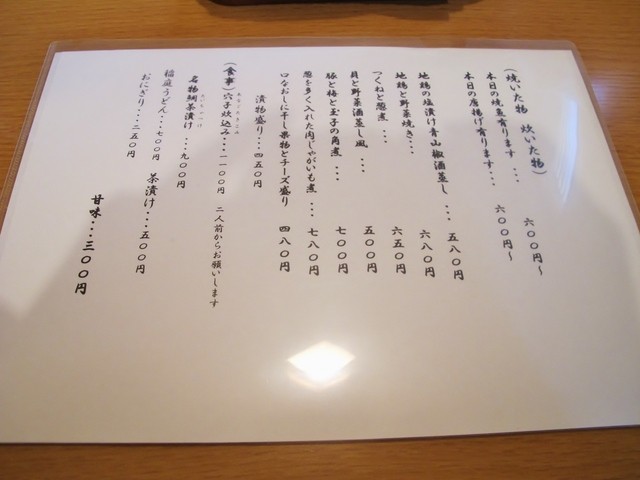 (焼いた物 炊いた物)
本日の焼魚有ります... 六〇〇円〜
本日の唐揚げ有ります... 六〇〇円〜
地鶏の塩漬け青山椒酒蒸し... 五八〇円
地鶏と野菜焼き... 六八〇円
つくねと葱煮... 六五〇円
貝と野菜酒蒸し風... 五〇〇円
豚と梅と玉子の角煮... 七〇〇円
葱を多く入れた肉じゃがいも煮... 七八〇円
口なおしに干し果物とチーズ盛り 四八〇円
漬物盛り...四五〇円
(食事)穴子炊込み...一一〇〇円 二人前からお願いします
名物鯛茶漬け...九〇〇円
稲庭うどん...七〇〇円 茶漬け...五〇〇円
おにぎり...二五〇円
甘味...三〇〇円